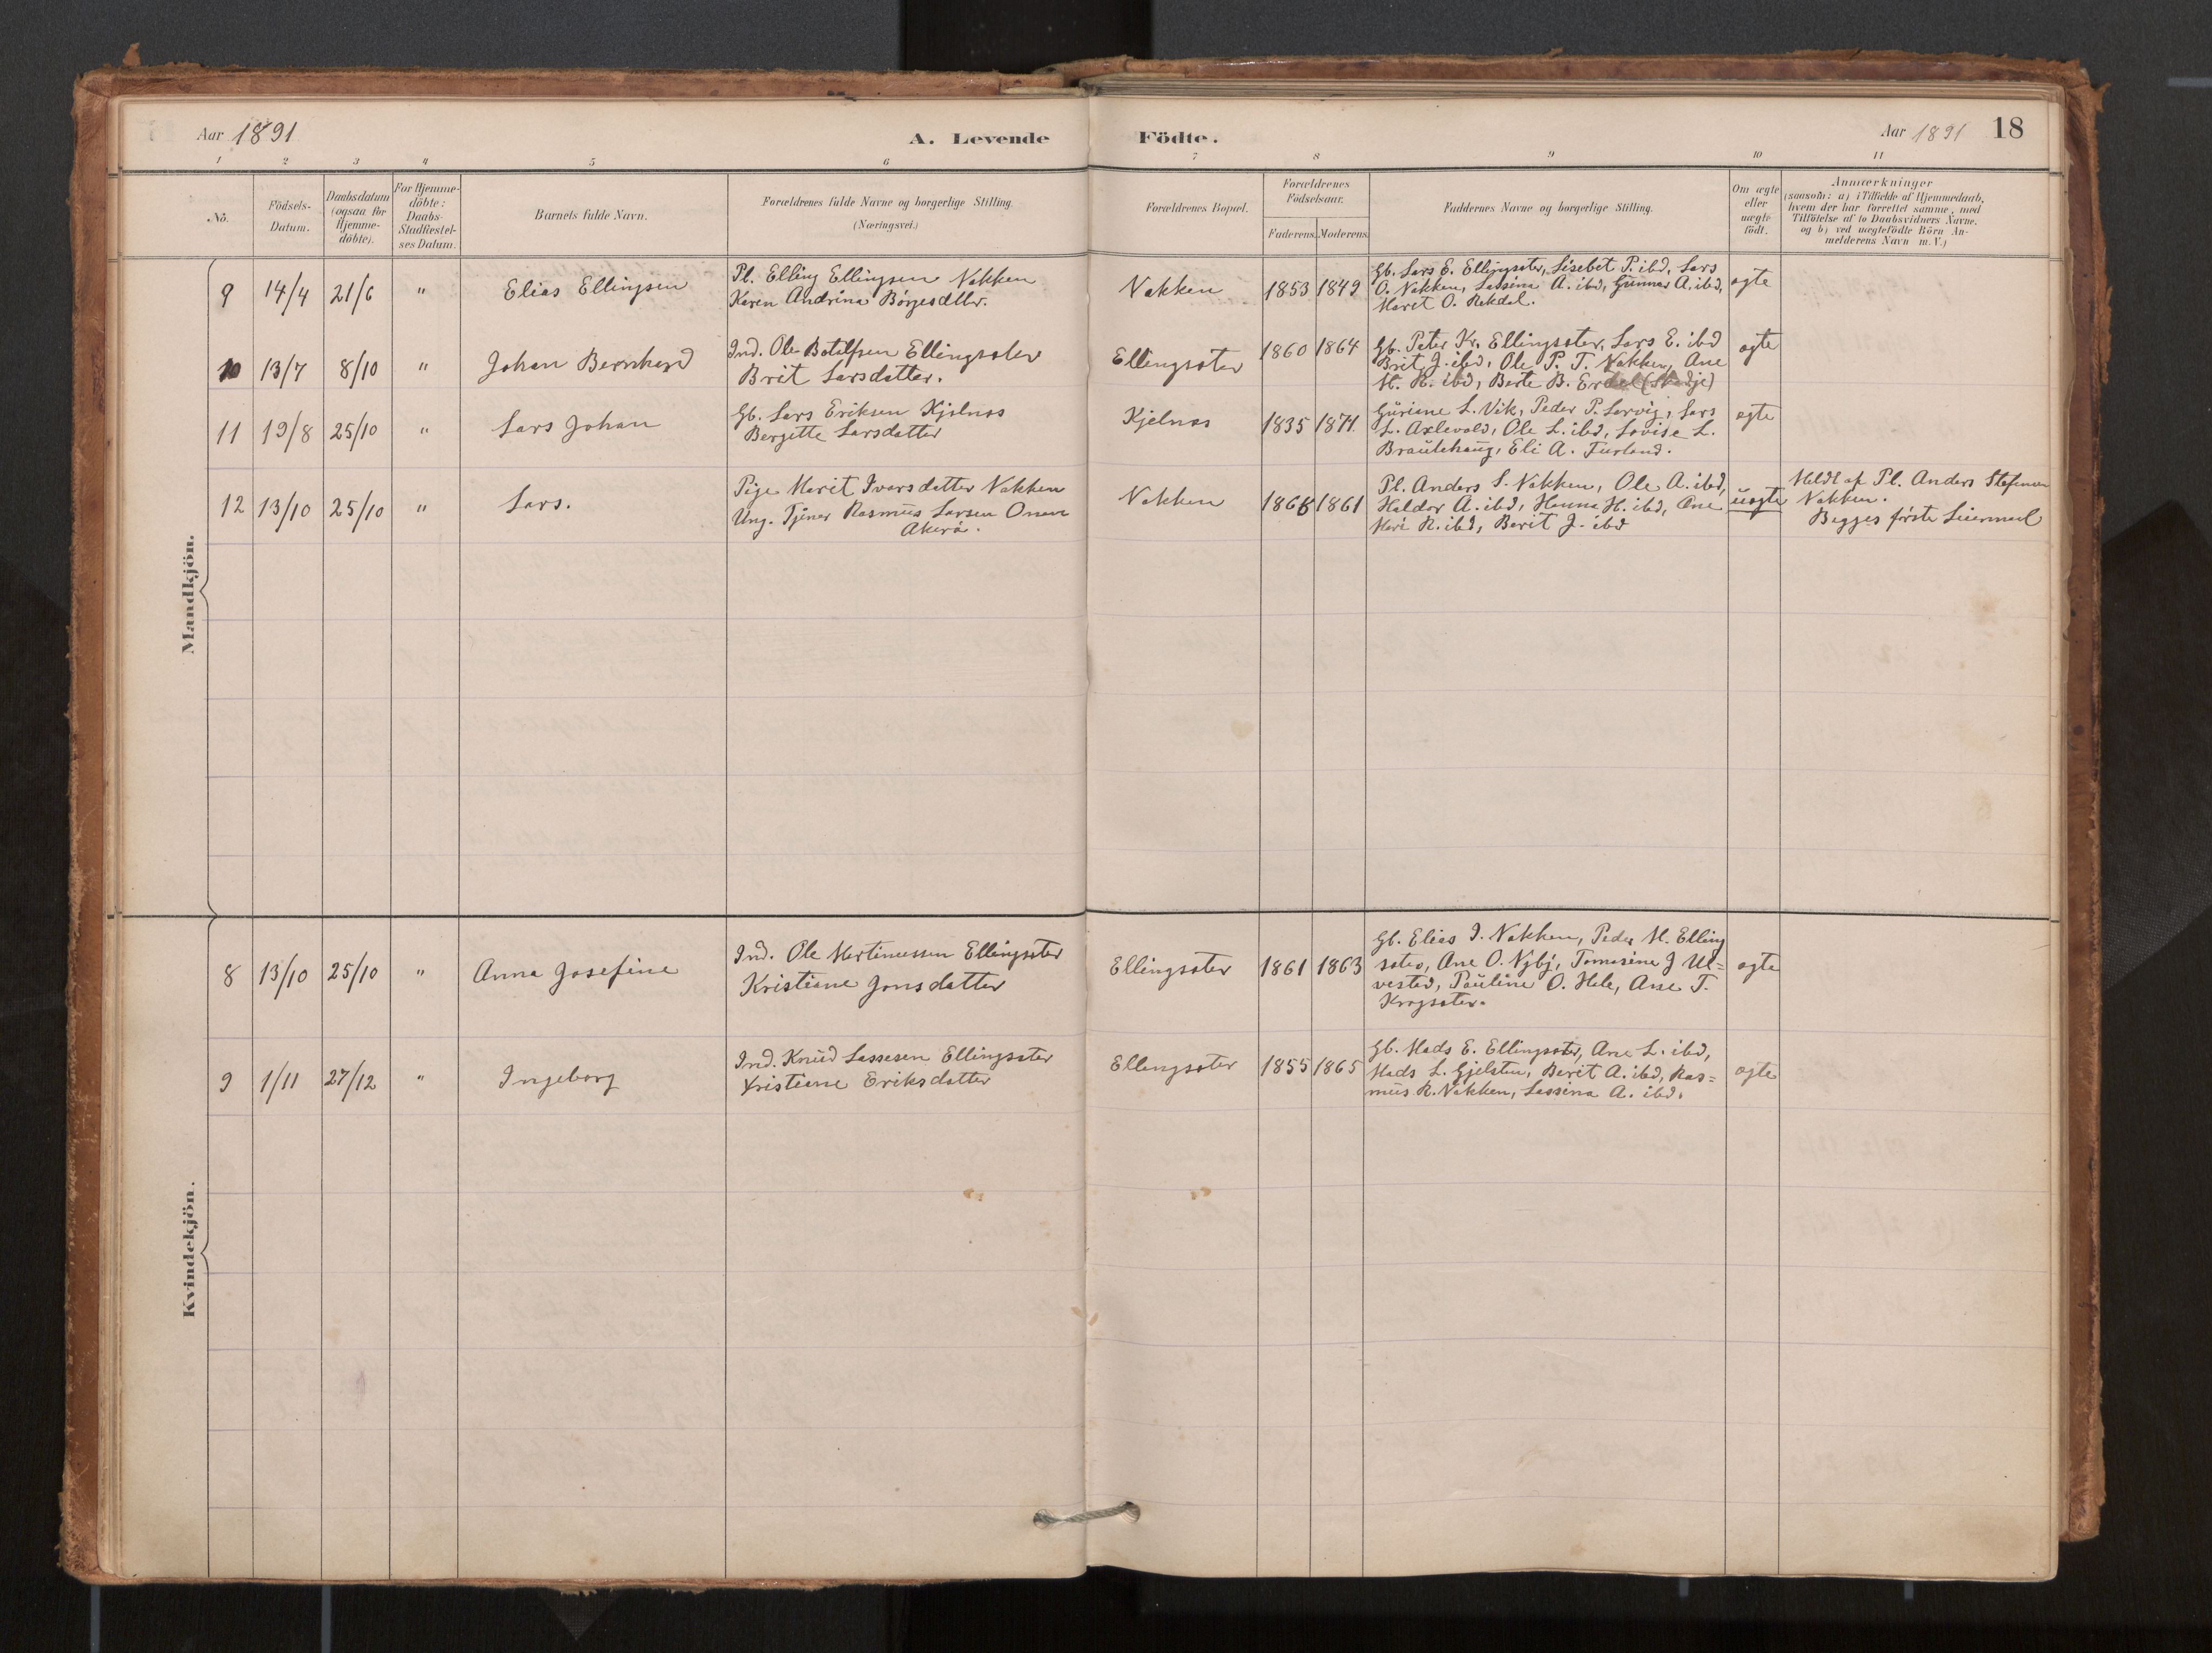 Aar 1891
A. Levende Födte.
Aar 1891 18
1 2 3 4 5 6 7 8 9 10 11
No.
Födsels-
Datum.
Daabsdatum
(ogsaa for
Hjemme-
döbte).
For Hjemme-
döbte:
Daabs-
Stadfæstel-
ses Datum.
Barnets fulde Navn.
Forældrenes fulde Navne og borgerlige Stilling.
(Næringsvei.)
Forældrenes Bopæl.
Forældrenes
Födselsaar.
Faderens. Moderens.
Faddernes Navne og borgerlige Stilling.
Om ægte
eller
uægte
födt.
Anmærkninger
(saasom: a) i Tilfælde af Hjemmedaab,
hvem der har forrettet samme, med
Tilföielse af to Daabsvidners Navne.
og b) ved uægtefödte Börn An-
melderens Navn m. V.)
Mandkjön.
9 14/4 21/6 " Elias Ellingsen
Pl. Elling Ellingsen Nakken
Karen Andrina Börgesdtter.
Nakken 1853 1849
Gb. Lars E. Ellingsæter, Lisebet P. ibd, Lars
O. Nakken, Lassina A. ibd, Gunnar A. ibd,
Marit O. Rekdal.
ægte
10 13/7 8/10 " Johan Bernhard
Ind. Ole Botolfsen Ellingsæter
Brit Larsdatter.
Ellingsæter 1860 1864
Gb. Peter Kr. Ellingsæter, Lars E. ibd
Brit J. ibd, Ole P. T. Nakken, Ane
M. R. ibd, Berte B. Erdal (Skodje)
ægte
11 19/8 25/10 " Lars Johan
Gb. Lars Eriksen Kjelnæs
Bergitte Larsdatter
Kjelnæs 1835 1871
Guriane L. Vik, Peder P. Sorvig, Lars
L. Axlevold, Ole L. ibd, Lovise L.
Brautehaug, Eli A. Furland.
ægte
12 13/10 25/10 " Lars.
Pige Marit Ivarsdatter Nakken
Ung. Tjener Rasmus Larsen Onen
Akerö.
Nakken 1868 1861
Pl. Anders S. Nakken, Ole A. ibd,
Haldor A. ibd, Hanna H. ibd, Ane
Mari R. ibd, Berit J. ibd
uægte
Meldt af Pl. Anders Stefensen
Nakken.
Begges første Leiermaal
Kvindekjön.
8 13/10 25/10 " Anna Josefine
Ind. Ole Martinussen Ellingsæter
Kristiane Jonsdatter
Ellingsæter 1861 1863
Gb. Elias I. Nakken, Peder M. Elling
sæter, Ane O. Nybj, Tomasine J Ul=
vestad, Pauline O. Hele, Ane T.
Krogsæter.
ægte
9 1/11 27/12 " Ingeborg
Ind. Knud Lassesen Ellingsæter
Kristiane Eriksdatter
Ellingsæter 1855 1865
Gb. Mads E. Ellingsæter, Ane L. ibd,
Mads L. Gjelsten, Berit A. ibd, Ras=
mus R. Nakken, Lassina A. ibd.
ægte